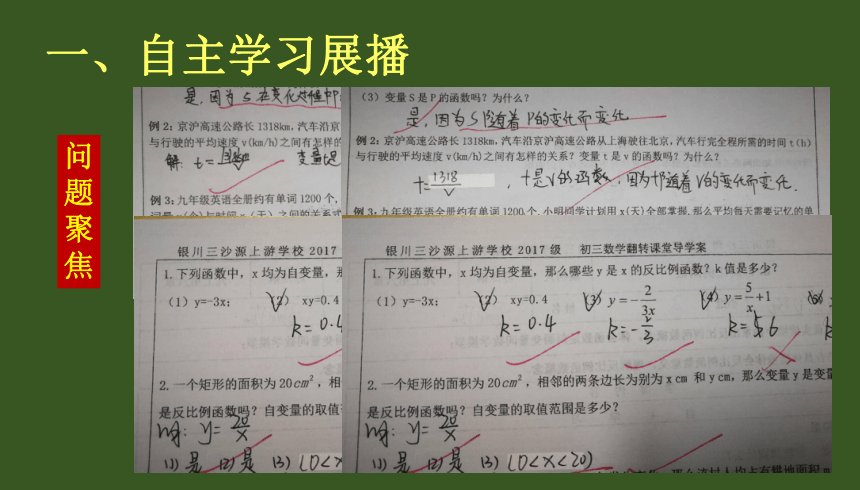 一、自主学习展播
问题聚焦
是,因为S在变化过程中
例2:京沪高速公路长1318km,汽车沿京
与行驶的平均速度v(km/h)之间有怎样的
解: t=1318/v 变量t是
例3:九年级英语全册约有单词1200个,
(3)变量S是P的函数吗?为什么?
是,因为S随着P的变化而变化
例2:京沪高速公路长1318km,汽车沿京沪高速公路从上海驶往北京,汽车行完全程所需的时间t(h)
与行驶的平均速度v(km/h)之间有怎样的关系?变量t是v的函数吗?为什么?
t=1318/v ,t是v的函数,因为t随着v的变化而变化.
例3:九年级英语全册约有单词1200个,小明同学计划用x(天)全部掌握,那么平均每天需要记忆的单
银川三沙源上游学校2017
1.下列函数中,x均为自变量,那
(1)y=-3x; (2) xy=0.4
k=0.4
2.一个矩形的面积为20cm²,相
是反比例函数吗?自变量的取值
解: y=20/x
(1)是 (2)是 (3)(0<x
银川三沙源上游学校2017级 初三数学翻转课堂导学案
1.下列函数中,x均为自变量,那么哪些y是x的反比例函数?k值是多少?
(1)y=-3x; (2) xy=0.4 (3) y=-2/3x (4) y=5/x+1
k=0.4 k=-2/3 k=5 6
2.一个矩形的面积为20cm²,相邻的两条边长为别为x cm和y cm,那么变量y是变量
是反比例函数吗?自变量的取值范围是多少?
解: y=20/x
(1)是 (2)是 (3)(0<x<20)
那么该村人均占有耕地面积